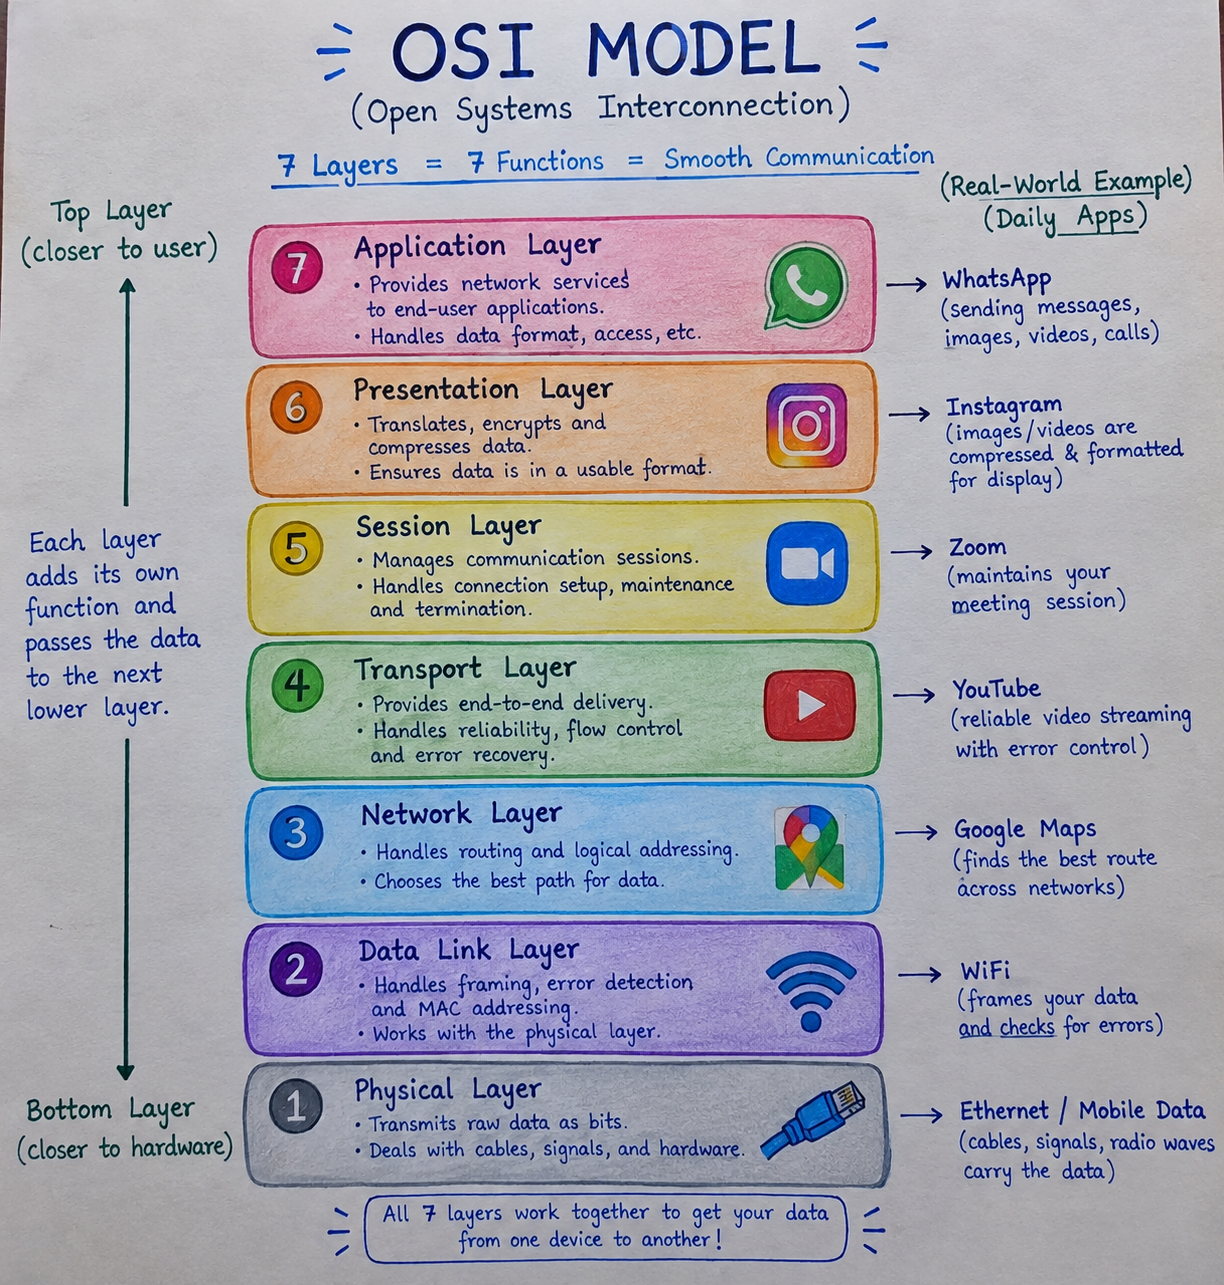 OSI MODEL
(Open Systems Interconnection)
7 Layers = 7 Functions = Smooth Communication
(Real-World Example)
(Daily Apps)
Top Layer
(closer to user)
Each layer
adds its own
function and
passes the data
to the next
lower layer.
Bottom Layer
(closer to hardware)
7
Application Layer
• Provides network services
to end-user applications.
• Handles data format, access, etc.
WhatsApp
(sending messages,
images, videos, calls)
6
Presentation Layer
• Translates, encrypts and
compresses data.
• Ensures data is in a usable format.
Instagram
(images/videos are
compressed & formatted
for display)
5
Session Layer
• Manages communication sessions.
• Handles connection setup, maintenance
and termination.
Zoom
(maintains your
meeting session)
4
Transport Layer
• Provides end-to-end delivery.
• Handles reliability, flow control
and error recovery.
YouTube
(reliable video streaming
with error control)
3
Network Layer
• Handles routing and logical addressing.
• Chooses the best path for data.
Google Maps
(finds the best route
across networks)
2
Data Link Layer
• Handles framing, error detection
and MAC addressing.
• Works with the physical layer.
WiFi
(frames your data
and checks for errors)
1
Physical Layer
• Transmits raw data as bits.
• Deals with cables, signals, and hardware.
Ethernet / Mobile Data
(cables, signals, radio waves
carry the data)
All 7 layers work together to get your data
from one device to another!